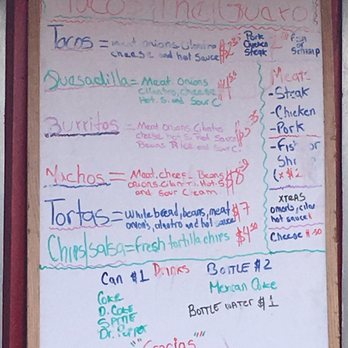 Taco
Tacos = meat onions cilantro
cheese and hot sauce
Pork
Chicken
Steak
Fish
or
Shrimp
Quesadilla = Meat Onions
cilantro, cheese
Hot S. and Sour C.
Burritos = Meat Onions Cilantro
cheese Hot S. Hot Sauce
Beans Rice and Sour C.
Nachos = Meat, chees- Beans $8
onions, cilantro, Hot S.
and Sour Cream
Tortas = White bread, beans, meat $7
onions, cilantro and hot sauce
Chips/salsa = fresh tortilla chips $4.50
Meats
-Steak
-Chicken
-Pork
-Fish or
Shr
(x $2
XTRAS
onions, cilan
hot sauce
Cheese $.50
Can $1 Drinks Bottle $2
Coke
D. Coke
Sprite
Dr. Pepper
Mexican Coke
Bottle water $1
"Gracias"